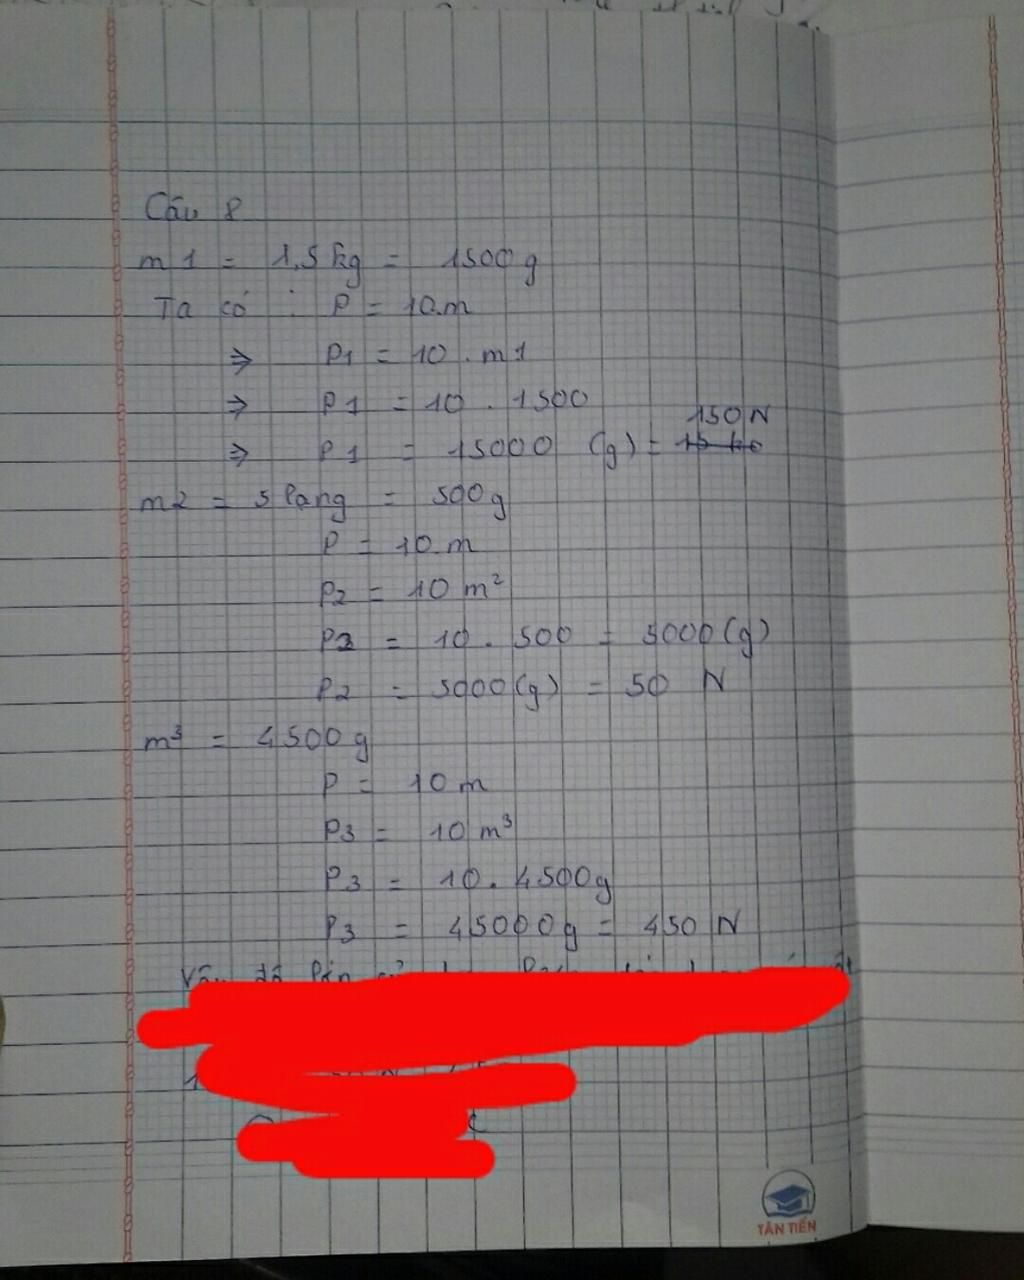 Câu 8
m1 = 1,5 kg = 1500 g
Ta có : P = 10.m
⇒ P1 = 10 . m1
⇒ P1 = 10 . 1500
150 N
⇒ P1 = 15000 (g) =
m2 = 5 lạng = 500g
P = 10.m
P2 = 10 m²
P2 = 10 . 500 = 5000(g)
P2 = 5000(g) = 50 N
m³ = 4500 g
P = 10 m
P3 = 10 m³
P3 = 10. 4500g
P3 = 45000g = 450 N
TÂN TIẾN